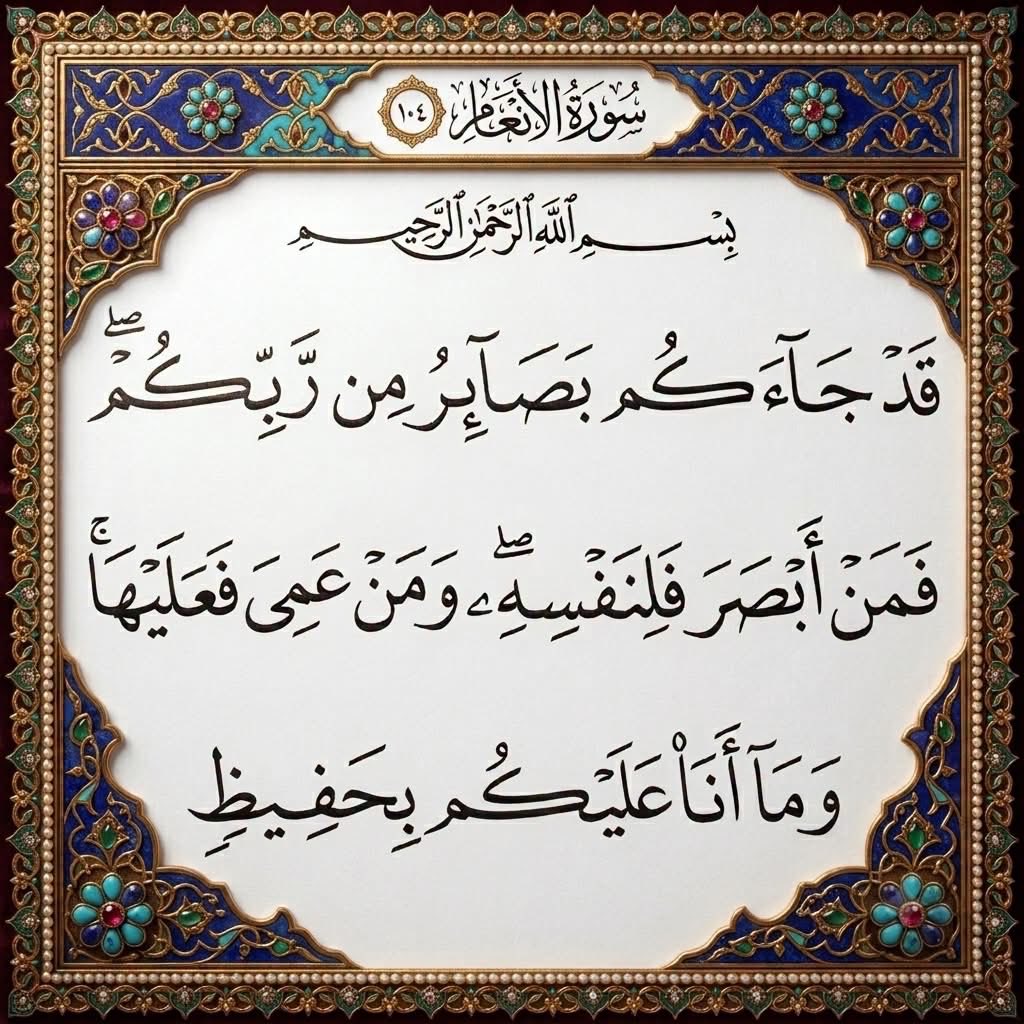 سُورَةُ الأَنْعَامِ ١٠٤
بِسْمِ ٱللَّهِ ٱلرَّحْمَٰنِ ٱلرَّحِيمِ
قَدْ جَآءَكُم بَصَآئِرُ مِن رَّبِّكُمْ ۖ
فَمَنْ أَبْصَرَ فَلِنَفْسِهِۦ ۖ وَمَنْ عَمِىَ فَعَلَيْهَا ۚ
وَمَآ أَنَا۠ عَلَيْكُم بِحَفِيظٍ